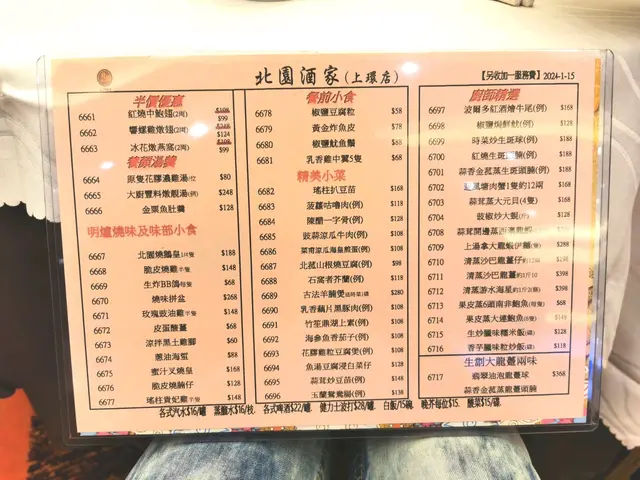 北園酒家(上環店)
【另收加一服務費】2024-1-15
半價優惠
6661 紅燒中鮑翅(2両) $198 $99
6662 響螺雞燉翅(2両) $248 $124
6663 冰花燉燕窩(2両) $99
養顏湯羹
6664 原隻花膠濃雞湯/位 $80
6665 大廚豐料燉靚湯(例) $248
6666 金粟魚肚羹 $128
明爐燒味及味部小食
6667 北園燒鵝皇1/4隻 $188
6668 脆皮燒雞半隻 $148
6669 生炸BB鴿每隻 $68
6670 燒味拼盆 $268
6671 玫瑰豉油雞半隻 $148
6672 皮蛋酸薑 $68
6673 涼拌黑土雞腳 $60
6674 蔥油海蜇 $88
6675 蜜汁叉燒皇 $168
6676 脆皮燒腩仔 $128
6677 瑤柱貴妃雞半隻 $148
餐前小食
6678 椒鹽豆腐粒 $58
6679 黃金炸魚皮 $78
6680 椒鹽魷魚鬚 $88
6681 乳香雞中翼5隻 $68
精美小菜
6682 瑤柱扒豆苗 $168
6683 菠蘿咕嚕肉(例) $118
6684 陳醋一字骨(例) $128
6685 豉蒜涼瓜牛肉(例) $108
6686 菜甫涼瓜海皇煎蛋(例) $108
6687 北菰山根燒豆腐(例) $98
6688 石窩者芥蘭(例) $118
6689 古法羊腩煲 $280
6690 乳香藕片黑豚肉(例) $108
6691 竹笙鼎湖上素(例) $108
6692 海參魚香茄子(例) $108
6693 花膠雞粒豆腐煲(例) $108
6694 魚湯豆腐浸白菜仔 $128
6695 蒜茸炒豆苗(例) $148
6696 玉蘭鴛鴦腸(例) $138
廚師精選
6697 波爾多紅酒燴牛尾(例) $168
6698 椒鹽焗鮮魷(例) $128
6699 時菜炒生斑球(例) $188
6700 紅燒生斑腩(例) $188
6701 蒜香金菰蒸生斑頭腩(例) $188
6702 避風塘肉蟹1隻約12兩 $168
6703 蒜茸蒸大元貝(4隻) $168
6704 豉椒炒大蜆(例) $128
6708 蒜茸開邊蒸
6709 上湯拿大龍蝦伊麵(例) $288
6710 清蒸沙巴龍躉仔 $298
6711 清蒸沙巴龍躉約1斤10 $398
6712 清蒸游水海星 $398
6713 果皮蒸6頭南非鮑魚(每隻) $68
6714 果皮蒸大連鮑魚 $148
6715 生炒臘味糯米飯(碟) $128
6716 香芋臘味粒炒飯(碟) $118
生劏大龍躉兩味
6717 翡翠油泡龍躉球 $368
蒜香金菰蒸龍躉頭腩
各式汽水$16/罐 蒸餾水$16/枝. 各式啤酒$22/罐. 健力士波打$28/罐. 白飯/15碗. 晚芥每位$15. 酸菜$15/碟.